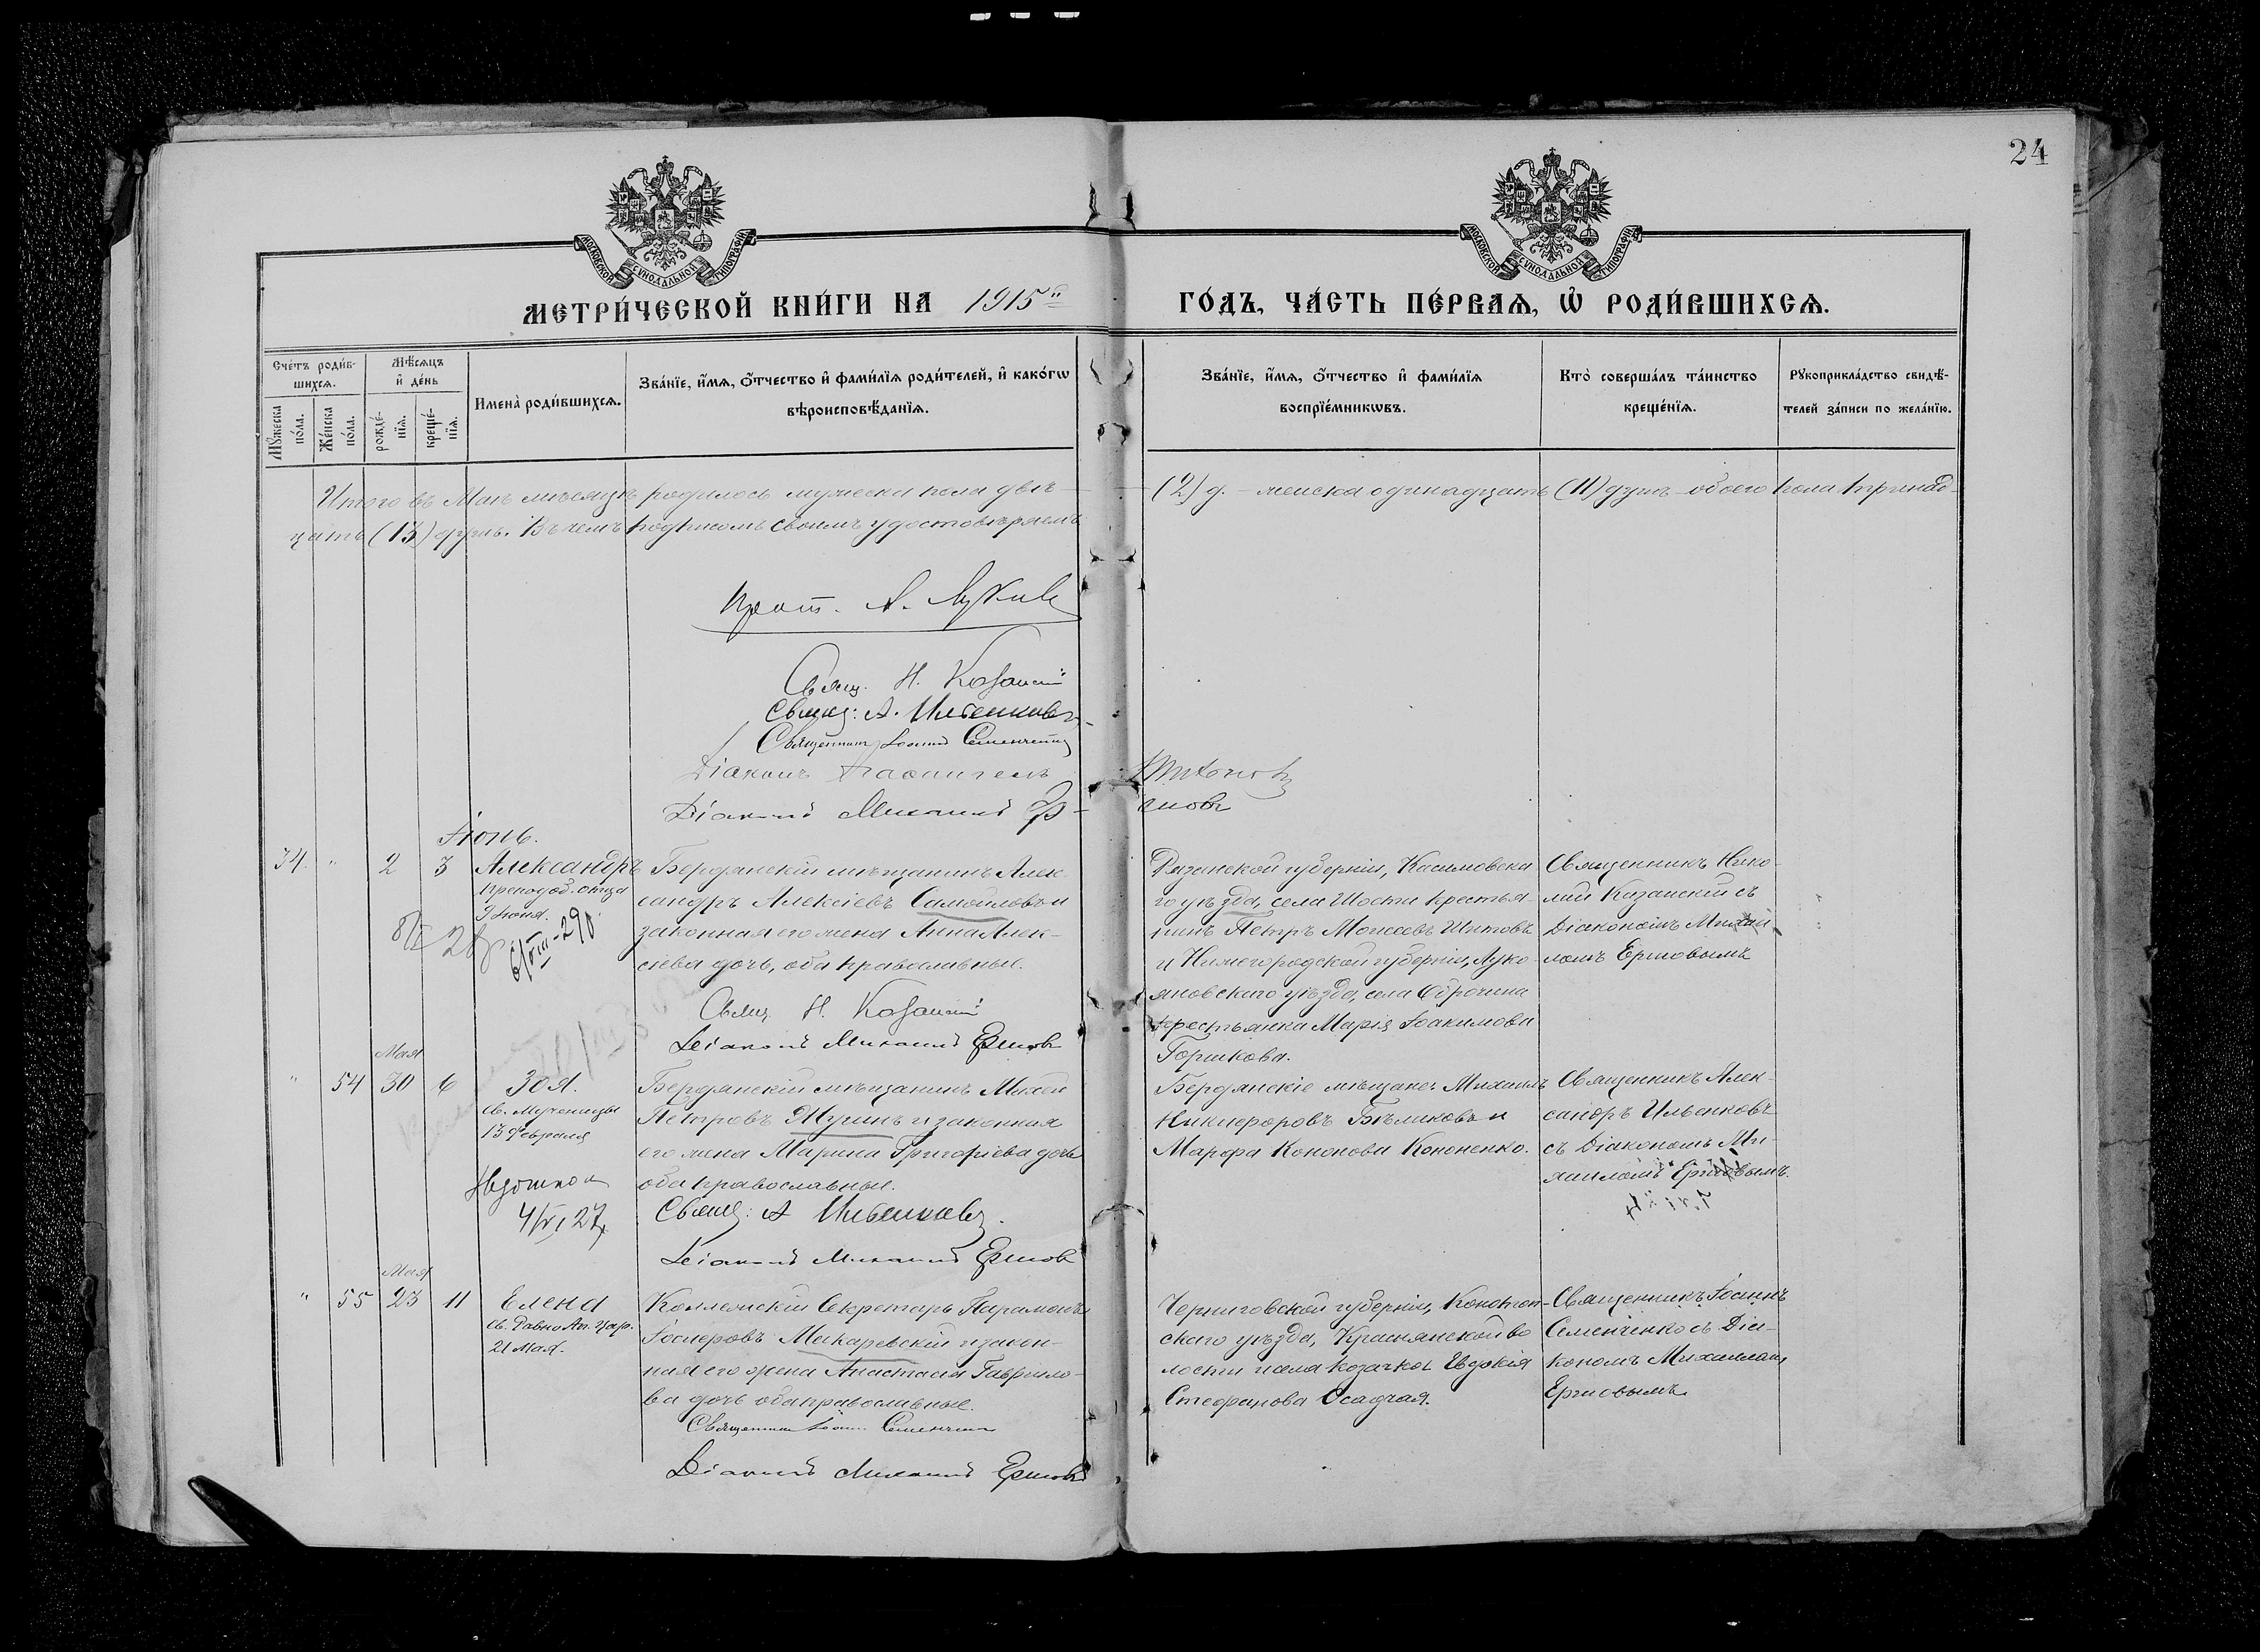 24
МОСКОВСКОЙ СѴНОДАЛЬНОЙ ТИПОГРАФІИ
МОСКОВСКОЙ СѴНОДАЛЬНОЙ ТИПОГРАФІИ
МЕТРИ́ЧЕСКОЙ КНИ́ГИ НА 1915й ГО́ДЪ, ЧА́СТЬ ПЕ́РВАѦ, Ѡ҆ РОДИ́ВШИХСѦ.
Сче́тъ роди́в-
шихсѧ.
Мѣ́сѧцъ
и҆ де́нь
Мꙋ́жеска
по́ла.
Же́нска
по́ла.
рожде́-
нїѧ.
креще́-
нїѧ.
Имена̀ роди́вшихсѧ.
Зва́нїе, и҆́мѧ, ѻ҆́тчество и҆ фами́лїѧ роди́телей, и҆ како́гѡ
вѣроисповѣ́данїѧ.
Зва́нїе, и҆́мѧ, ѻ҆́тчество и҆ фами́лїѧ
воспрїе́мникѡвъ.
Кто̀ соверша́лъ та́инство
креще́нїѧ.
Рꙋкоприкла́дство свидѣ́-
телей за́писи по жела́нїю.
Итого въ Маѣ мѣсяцѣ родилось мужеска пола двѣ (2) д. – женска одинадцать (11) душъ – обоего пола тринад-
цать (13) душъ. Въ чемъ подписомъ своимъ удостовѣряемъ
Прот. А.
Свящ. Н. Казанскій
Свящ: А. Ильенковъ
Священникъ Іоаннъ Семенченко
Діаконъ
Діаконъ Михаилъ Ершовъ
Іюнь.
34. " 2 3 Александръ
Преподоб. отца
9 Іюня.
6/VIII-29г
Бердянскій мѣщанинъ Алек
сандръ Алексіевъ Самойловъ и
законная его жена Анна Алек-
сіева дочь, оба православные.
Свящ Н. Казанскій
Діаконъ Михаилъ Ершовъ
Рязанской губерніи, Касимовска
го уѣзда, села Шости крестья-
нинъ Петръ Моисеевъ Шитовъ
и Нижегородской губерніи, Луко-
яновскаго уѣзда, села Оброчина
крестьянка Марія Іоакимова
Горшкова.
Священникъ Нико-
лай Казанскій съ
Діакономъ Михаи-
ломъ Ершовымъ
Мая
" 54 30 6 Зоя.
св. Мученицы
13 Февраля
4/VI 27
Бердянскій мѣщанинъ Михей
Петровъ Жушнъ и законная
его жена Марина Григоріева дочь
оба православные.
Свящ: А Ильенковъ.
Діаконъ Михаилъ Ершовъ
Бердянскіе мѣщане: Михаилъ
Никифоровъ Бѣликовъ и
Марфа Кононова Кононенко.
Священникъ Алек-
сандръ Ильенковъ
съ Діакономъ Ми-
хаиломъ Ершовымъ.
Мая
" 55 23 11 Елена
св. Равно Ап. Цар.
21 Мая.
Коллежскій Секретарь Парамонъ
Іосифовъ Макаревскій и закон-
ная его жена Анастасія Гаврило-
ва дочь оба православные.
Священникъ Іоаннъ Семенченко
Діаконъ Михаилъ Ершовъ
Черниговской губерніи, Конотоп-
скаго уѣзда, Краснянской во
лости и села козачка Евдокія
Стефанова Осадчая.
Священникъ Іоаннъ
Семенченко съ Діа-
кономъ Михаиломъ
Ершовымъ.